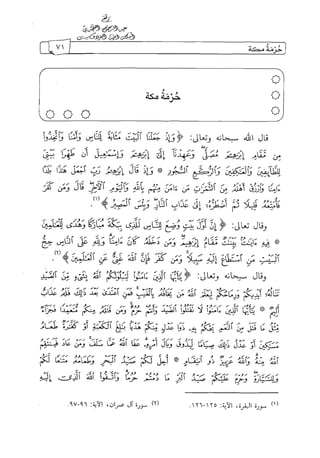 حُرْمَةُ مكة
٧١
حُرْمَةُ مكة
قال الله سبحانه وتعالى: ﴿وَإِذْ جَعَلْنَا الْبَيْتَ مَثَابَةً لِّلنَّاسِ وَأَمْنًا وَاتَّخِذُوا
مِن مَّقَامِ إِبْرَاهِيمَ مُصَلًّى وَعَهِدْنَا إِلَى إِبْرَاهِيمَ وَإِسْمَاعِيلَ أَن طَهِّرَا بَيْتِيَ
لِلطَّائِفِينَ وَالْعَاكِفِينَ وَالرُّكَّعِ السُّجُودِ * وَإِذْ قَالَ إِبْرَاهِيمُ رَبِّ اجْعَلْ هَذَا بَلَدًا
آمِنًا وَارْزُقْ أَهْلَهُ مِنَ الثَّمَرَاتِ مَنْ آمَنَ مِنْهُم بِاللَّهِ وَالْيَوْمِ الْآخِرِ قَالَ وَمَن كَفَرَ
فَأُمَتِّعُهُ قَلِيلًا ثُمَّ أَضْطَرُّهُ إِلَى عَذَابِ النَّارِ وَبِئْسَ الْمَصِيرُ﴾(١).
وقال تعالى: ﴿إِنَّ أَوَّلَ بَيْتٍ وُضِعَ لِلنَّاسِ لَلَّذِي بِبَكَّةَ مُبَارَكًا وَهُدًى لِّلْعَالَمِينَ
* فِيهِ آيَاتٌ بَيِّنَاتٌ مَّقَامُ إِبْرَاهِيمَ وَمَن دَخَلَهُ كَانَ آمِنًا وَلِلَّهِ عَلَى النَّاسِ حِجُّ
الْبَيْتِ مَنِ اسْتَطَاعَ إِلَيْهِ سَبِيلًا وَمَن كَفَرَ فَإِنَّ اللَّهَ غَنِيٌّ عَنِ الْعَالَمِينَ﴾(٢).
وقال سبحانه وتعالى: ﴿يَا أَيُّهَا الَّذِينَ آمَنُوا لَيَبْلُوَنَّكُمُ اللَّهُ بِشَيْءٍ مِّنَ الصَّيْدِ
تَنَالُهُ أَيْدِيكُمْ وَرِمَاحُكُمْ لِيَعْلَمَ اللَّهُ مَن يَخَافُهُ بِالْغَيْبِ فَمَنِ اعْتَدَى بَعْدَ ذَلِكَ فَلَهُ عَذَابٌ
أَلِيمٌ * يَا أَيُّهَا الَّذِينَ آمَنُوا لَا تَقْتُلُوا الصَّيْدَ وَأَنتُمْ حُرُمٌ وَمَن قَتَلَهُ مِنكُم مُّتَعَمِّدًا فَجَزَاءٌ
مِّثْلُ مَا قَتَلَ مِنَ النَّعَمِ يَحْكُمُ بِهِ ذَوَا عَدْلٍ مِّنكُمْ هَدْيًا بَالِغَ الْكَعْبَةِ أَوْ كَفَّارَةٌ طَعَامُ
مَسَاكِينَ أَوْ عَدْلُ ذَلِكَ صِيَامًا لِّيَذُوقَ وَبَالَ أَمْرِهِ عَفَا اللَّهُ عَمَّا سَلَفَ وَمَنْ عَادَ فَيَنتَقِمُ
اللَّهُ مِنْهُ وَاللَّهُ عَزِيزٌ ذُو انتِقَامٍ * أُحِلَّ لَكُمْ صَيْدُ الْبَحْرِ وَطَعَامُهُ مَتَاعًا لَّكُمْ
وَلِلسَّيَّارَةِ وَحُرِّمَ عَلَيْكُمْ صَيْدُ الْبَرِّ مَا دُمْتُمْ حُرُمًا وَاتَّقُوا اللَّهَ الَّذِي إِلَيْهِ
(١) سورة البقرة، الآية: ١٢٥-١٢٦. (٢) سورة آل عمران، الآية: ٩٦-٩٧.